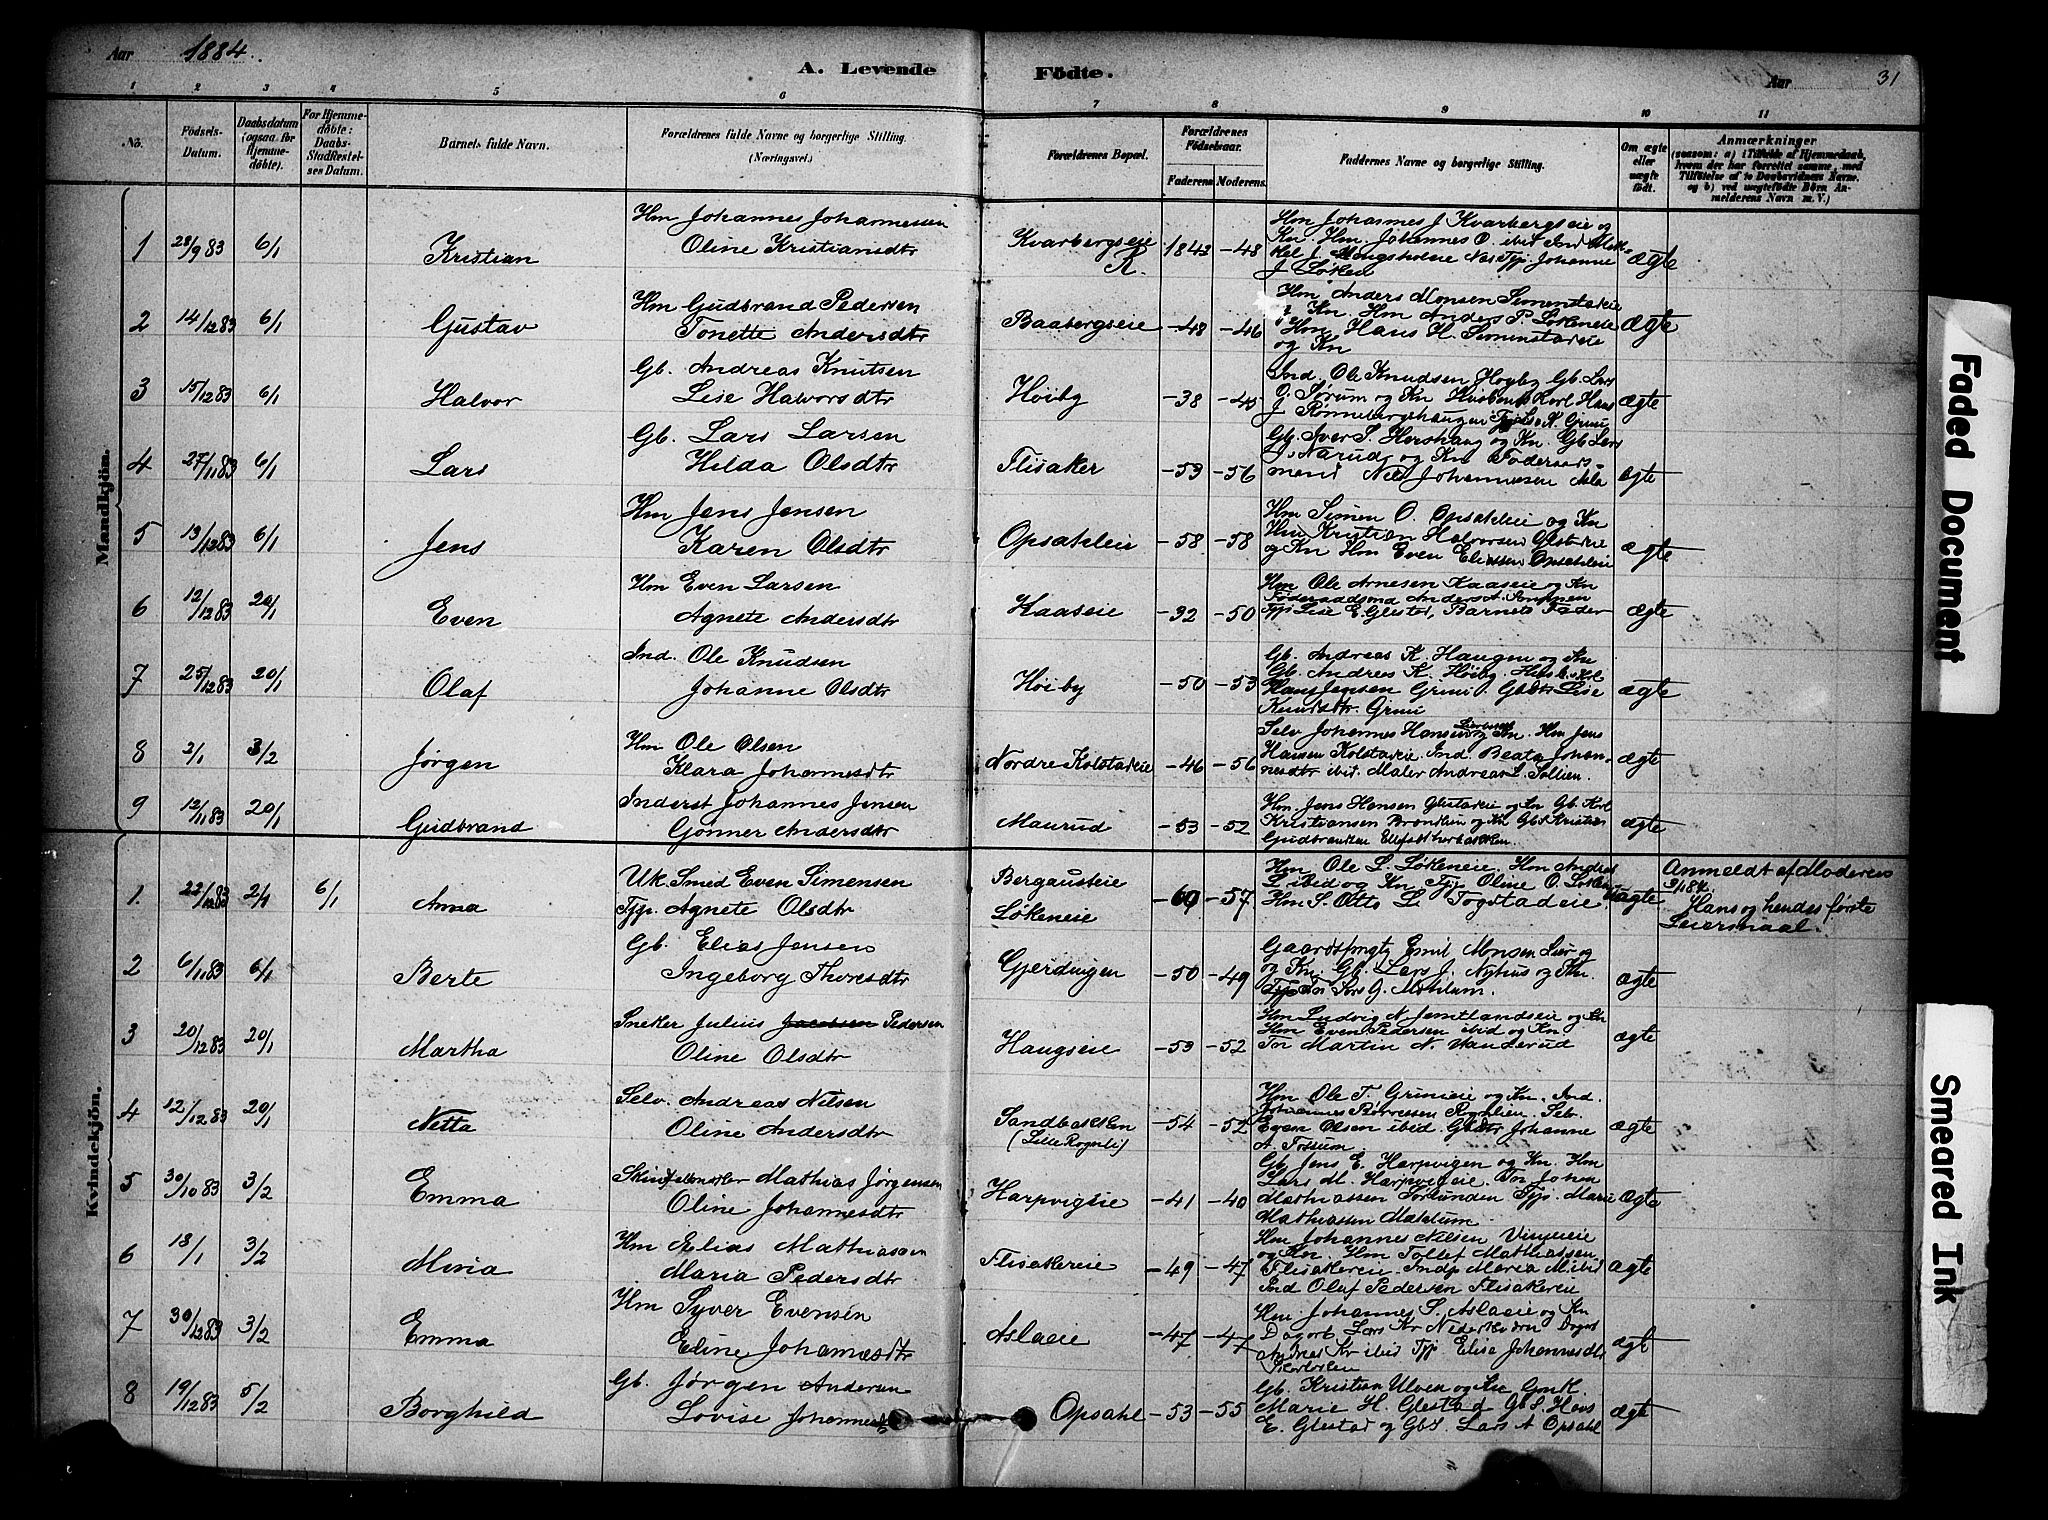 Aar 1884.
A. Levende Födte.
Aar 31
1 2 3 4 5 6 7 8 9 10 11
No.
Födsels-Datum.
Daabsdatum (ogsaa for Hjemmedöbte).
For Hjemmedöbte: Daabs-Stadfæstelses Datum.
Barnets fulde Navn.
Forældrenes fulde Navne og borgerlige Stilling. (Næringsvei.)
Forældrenes Bopæl.
Forældrenes Födselsaar.
Faderens. Moderens.
Faddernes Navne og borgerlige Stilling.
Om ægte eller uægte födt.
Anmærkninger
(saasom: a) i Tilfælde af Hjemmedaab, hvem der har forrettet samme, med Tilföielse af to Daabsvidners Navne, og b) ved uægtefödte Börn Anmelderens Navn m. V.)
Mandkjön.
1 28/9 83 6/1 Kristian Hm Johannes Johannessen
Oline Kristiansdtr Kvarbergseie K. 1843 -48
Hm Johannes J Kvarbergseie og
Kn. Hm. Johannes O. ibid Ind
Johanne
J Løken ægte
2 14/12 83 6/1 Gustav Hm Gudbrand Pedersen
Tonette Andersdtr Baabergseie -48 -46
Hm Anders Monsen Simenstadeie
og Kn. Hm Anders P. Løkeneie
Hm Hans H. Simenstadeie
og Kn ægte
3 15/12 83 6/1 Halvor Gb. Andreas Knutsen
Lise Halvorsdtr Høiby -38 -45
Ind. Ole Knudsen Høyby Gb. Lars
O. Sørum og Kn Karl Hans
J Rønnebergshaugen K. Grini ægte
4 27/11 83 6/1 Lars Gb. Lars Larsen
Hilda Olsdtr Flisaker -59 -56
Gb. Iver S. Hershaug og Kn. Gb Lars
J. Narud og Kn Føderaads-
mand Nils Johannesen Asla ægte
5 13/12 83 6/1 Jens Hm Jens Jensen
Karen Olsdtr Opsahleie -58 -58
Hm Simen O. Opsahleie og Kn
Hm Kristian Halvorsen Glestadeie
og Kn Hm Even Eliassen Opsahleie ægte
6 12/12 83 20/1 Even Hm Even Larsen
Agnete Andersdtr Kaaseie -32 -50
Hm Ole Arnesen Kaaseie og Kn
Føderaadsmd Anders A.
Tjp Lise E. Glestad, Barnets Fader ægte
7 25/12 83 20/1 Olaf Ind. Ole Knudsen
Johanne Olsdtr Høiby -50 -53
Gb. Andreas K. Haugen og Kn
Gb. Andreas K. Høiby
Hans Jensen Grini. Gbdtr Lise
Knudsdtr. Grini ægte
8 2/1 3/2 Jørgen Hm Ole Olsen
Klara Johannesdtr Nordre Kolstadeie -46 -56
Selv Johannes Hansen og Kn. Hm Jens
Hansen Kolstadeie. Ind. Beata Johan-
nesdtr ibid. Maler Andreas L. Tollien. ægte
9 12/11 83 20/1 Gudbrand Inderst Johannes Jensen
Gonner Andersdtr Maurud -53 -52
Hm. Jens Hansen Glestadeie og Kn Gb. Karl
Kristiansen og Kn GbS Kristian
Gudbrandsen ægte
Kvindekjön.
1 22/12 83 2/1 6/1 Anna Uk. Smed Even Simensen
Tjp. Agnete Olsdtr Bergauseie
Løkeneie -57
Hm. Ole L. Løkeneie. Hm Andreas
L ibid og Kn Tjp Oline O. Løken
Hm. S. Otto L. Togstadeie uægte
Anmeldt af Moderen
3/1 84.
Hans og hendes første
Leiermaal.
2 6/11 83 6/1 Berte Gb. Elias Jensen
Ingeborg Thoresdtr Gjerdvigen -50 -49
Gaardsfgt Emil Monsen Lier og
og Kn. Gb. Lars J. Nyhus og Kn.
Lars G. Mæhlum. ægte
3 20/12 83 20/1 Martha Sneker Julius Jacobsen Pedersen
Oline Olsdtr Haugseie -53 -52
Hm Ludvig N. Jemtlandseie og Kn
Hm Even Pedersen ibid og Kn
Tor Martin N. Vanderud ægte
4 12/12 83 20/1 Netta Selv. Andreas Nilsen
Oline Andersdtr Sandbakken
(Lille Rognli) -54 -52
Hm Ole T. Grinieie og Kn. Ind.
Johannes Børresen Rognlien. Selv.
Even Olsen ibid. Gbdtr Johanne
A. Fossum ægte
5 30/10 83 3/2 Emma Skindfelbereder Mathias Jørgensen
Oline Johannesdtr Harpvigeie -41 -40
Gb. Jens E. Harpvigen og Kn. Hm
Lars M. Harpvigeie. Tor Johan
Mathiassen Sørlunden Tjp. Marie
Mathiassen Mæhlum. ægte
6 18/1 3/2 Mina Hm Elias Mathiassen
Maria Pedersdtr Flisakereie -49 -47
Hm Johannes Nilsen Vinjueie
og Kn. Hm Tollef Mathiassen
Flisakereie. Indp Maria M. ibid
Ind Olaf Pedersen Flisakereie ægte
7 30/12 83 3/2 Emma Hm Syver Evensen
Eline Johannesdtr Aslaeie -47 -47
Hm Johannes S. Aslaeie og Kn
Dagarb. Lars Kr
Andreas Kr ibid Tjp. Elise Johannesdtr
ægte
8 19/12 83 5/2 Borghild Gb. Jørgen Andersen
Lovise Johannesdtr Opsahl -53 -55
Gb. Kristian Ulven og Kn
Marie H. Glestad GbS. Hans
E. Glestad og GbS. Lars A Opsahl ægte
Faded Document
Smeared Ink